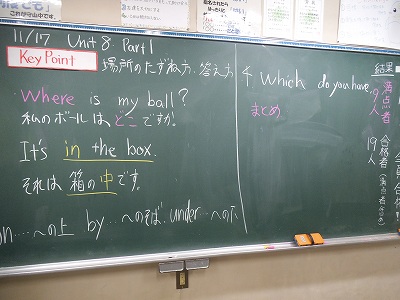 11/17 Unit 8 Part 1
Key Point
場所のたずね方、答え方
Where is my ball?
私のボールはどこですか。
It's in the box.
それは箱の中です。
on…への上 by…へのそば under…への下
which do you have
まとめ
結果
満点者
9人
合格者(満点者含め)
19人
これが守山中です。